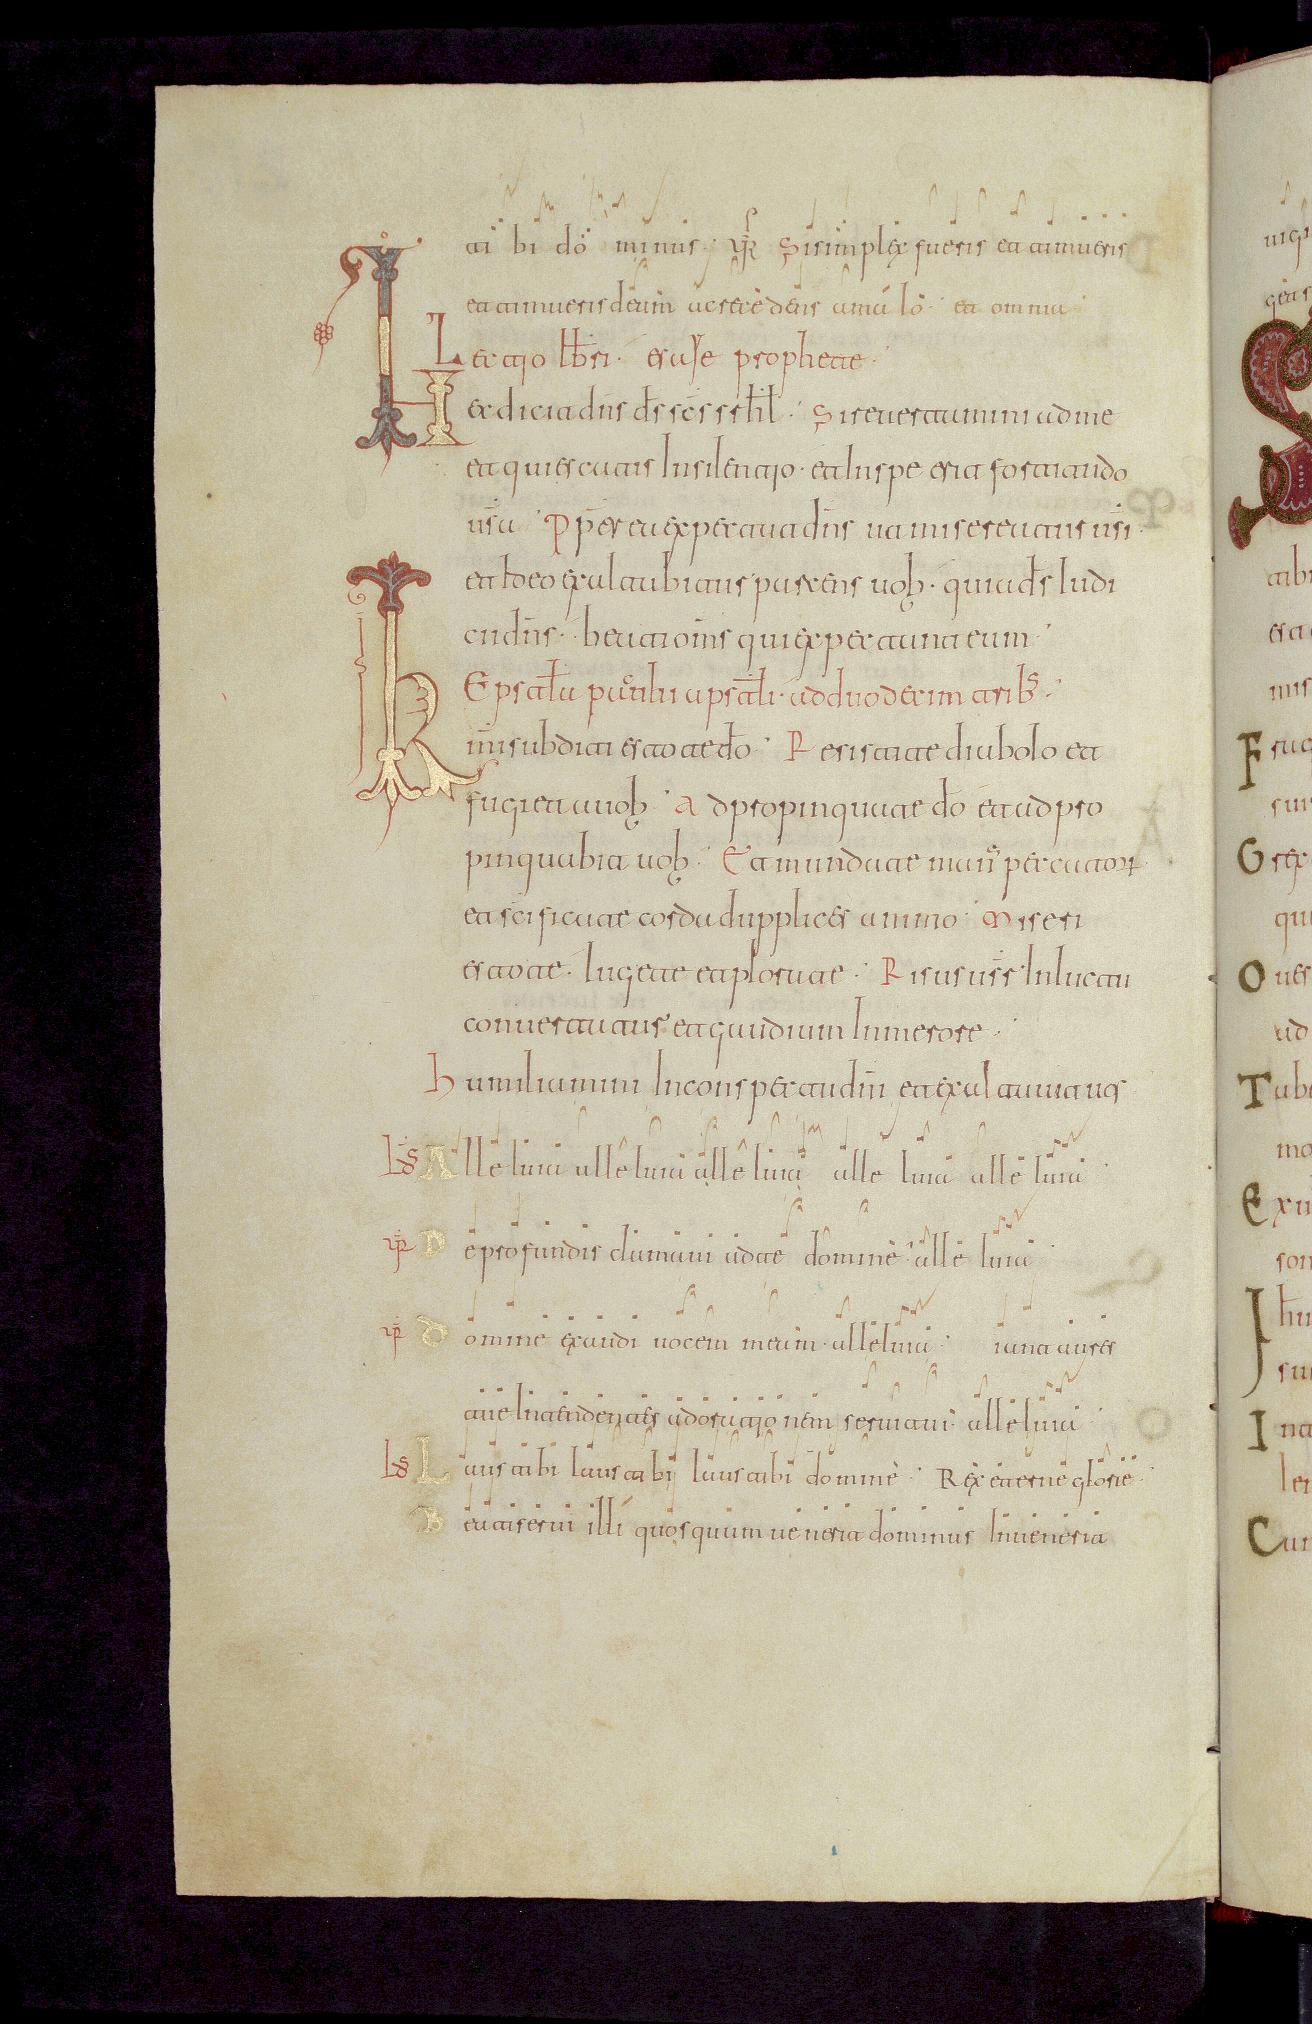 ti bi dō minus · VR Si simplex fueris et timueris
et timueris deum ac serē dens amu lō · et omnia
Lectio lbri · esaye prophete ·
Hec dicit dns ds scs srhl · Si revertamini ad me
et quiescatis In silentio · et In spe erit fortitudo
usa · Pperea expectat dns ut misereatur usi ·
et Ideo exaltabitur parcens uob · quia ds Iudi
cii dns · beati oms qui expectant eum ·
Epstla pauli apstli · ad duodecim trib ·
Krmi subditi estote do · Resistite diabolo et
fugiet a uob · Adpropinquate do et adpro
pinquabit uob · Et mundate man peccator
et scificate corda dupplices animo · Miseri
estote · lugete et plorate · Risus uss In luctu
convertatur et gaudium In merore ·
humiliamini In conspectu dni et exaltavit uos
Lds Alleluia alleluia alleluia alleluia alleluia
VR De profundis clamavi ad te domine · alleluia
VR Domine exaudi vocem meam · alleluia · iant aures
tue Intendentes ad orationem servi tui · alleluia ·
Lds Laus tibi laus tibi laus tibi domine · Rex eterne glorie ·
Beati servi illi quos quum venerit dominus Invenerit